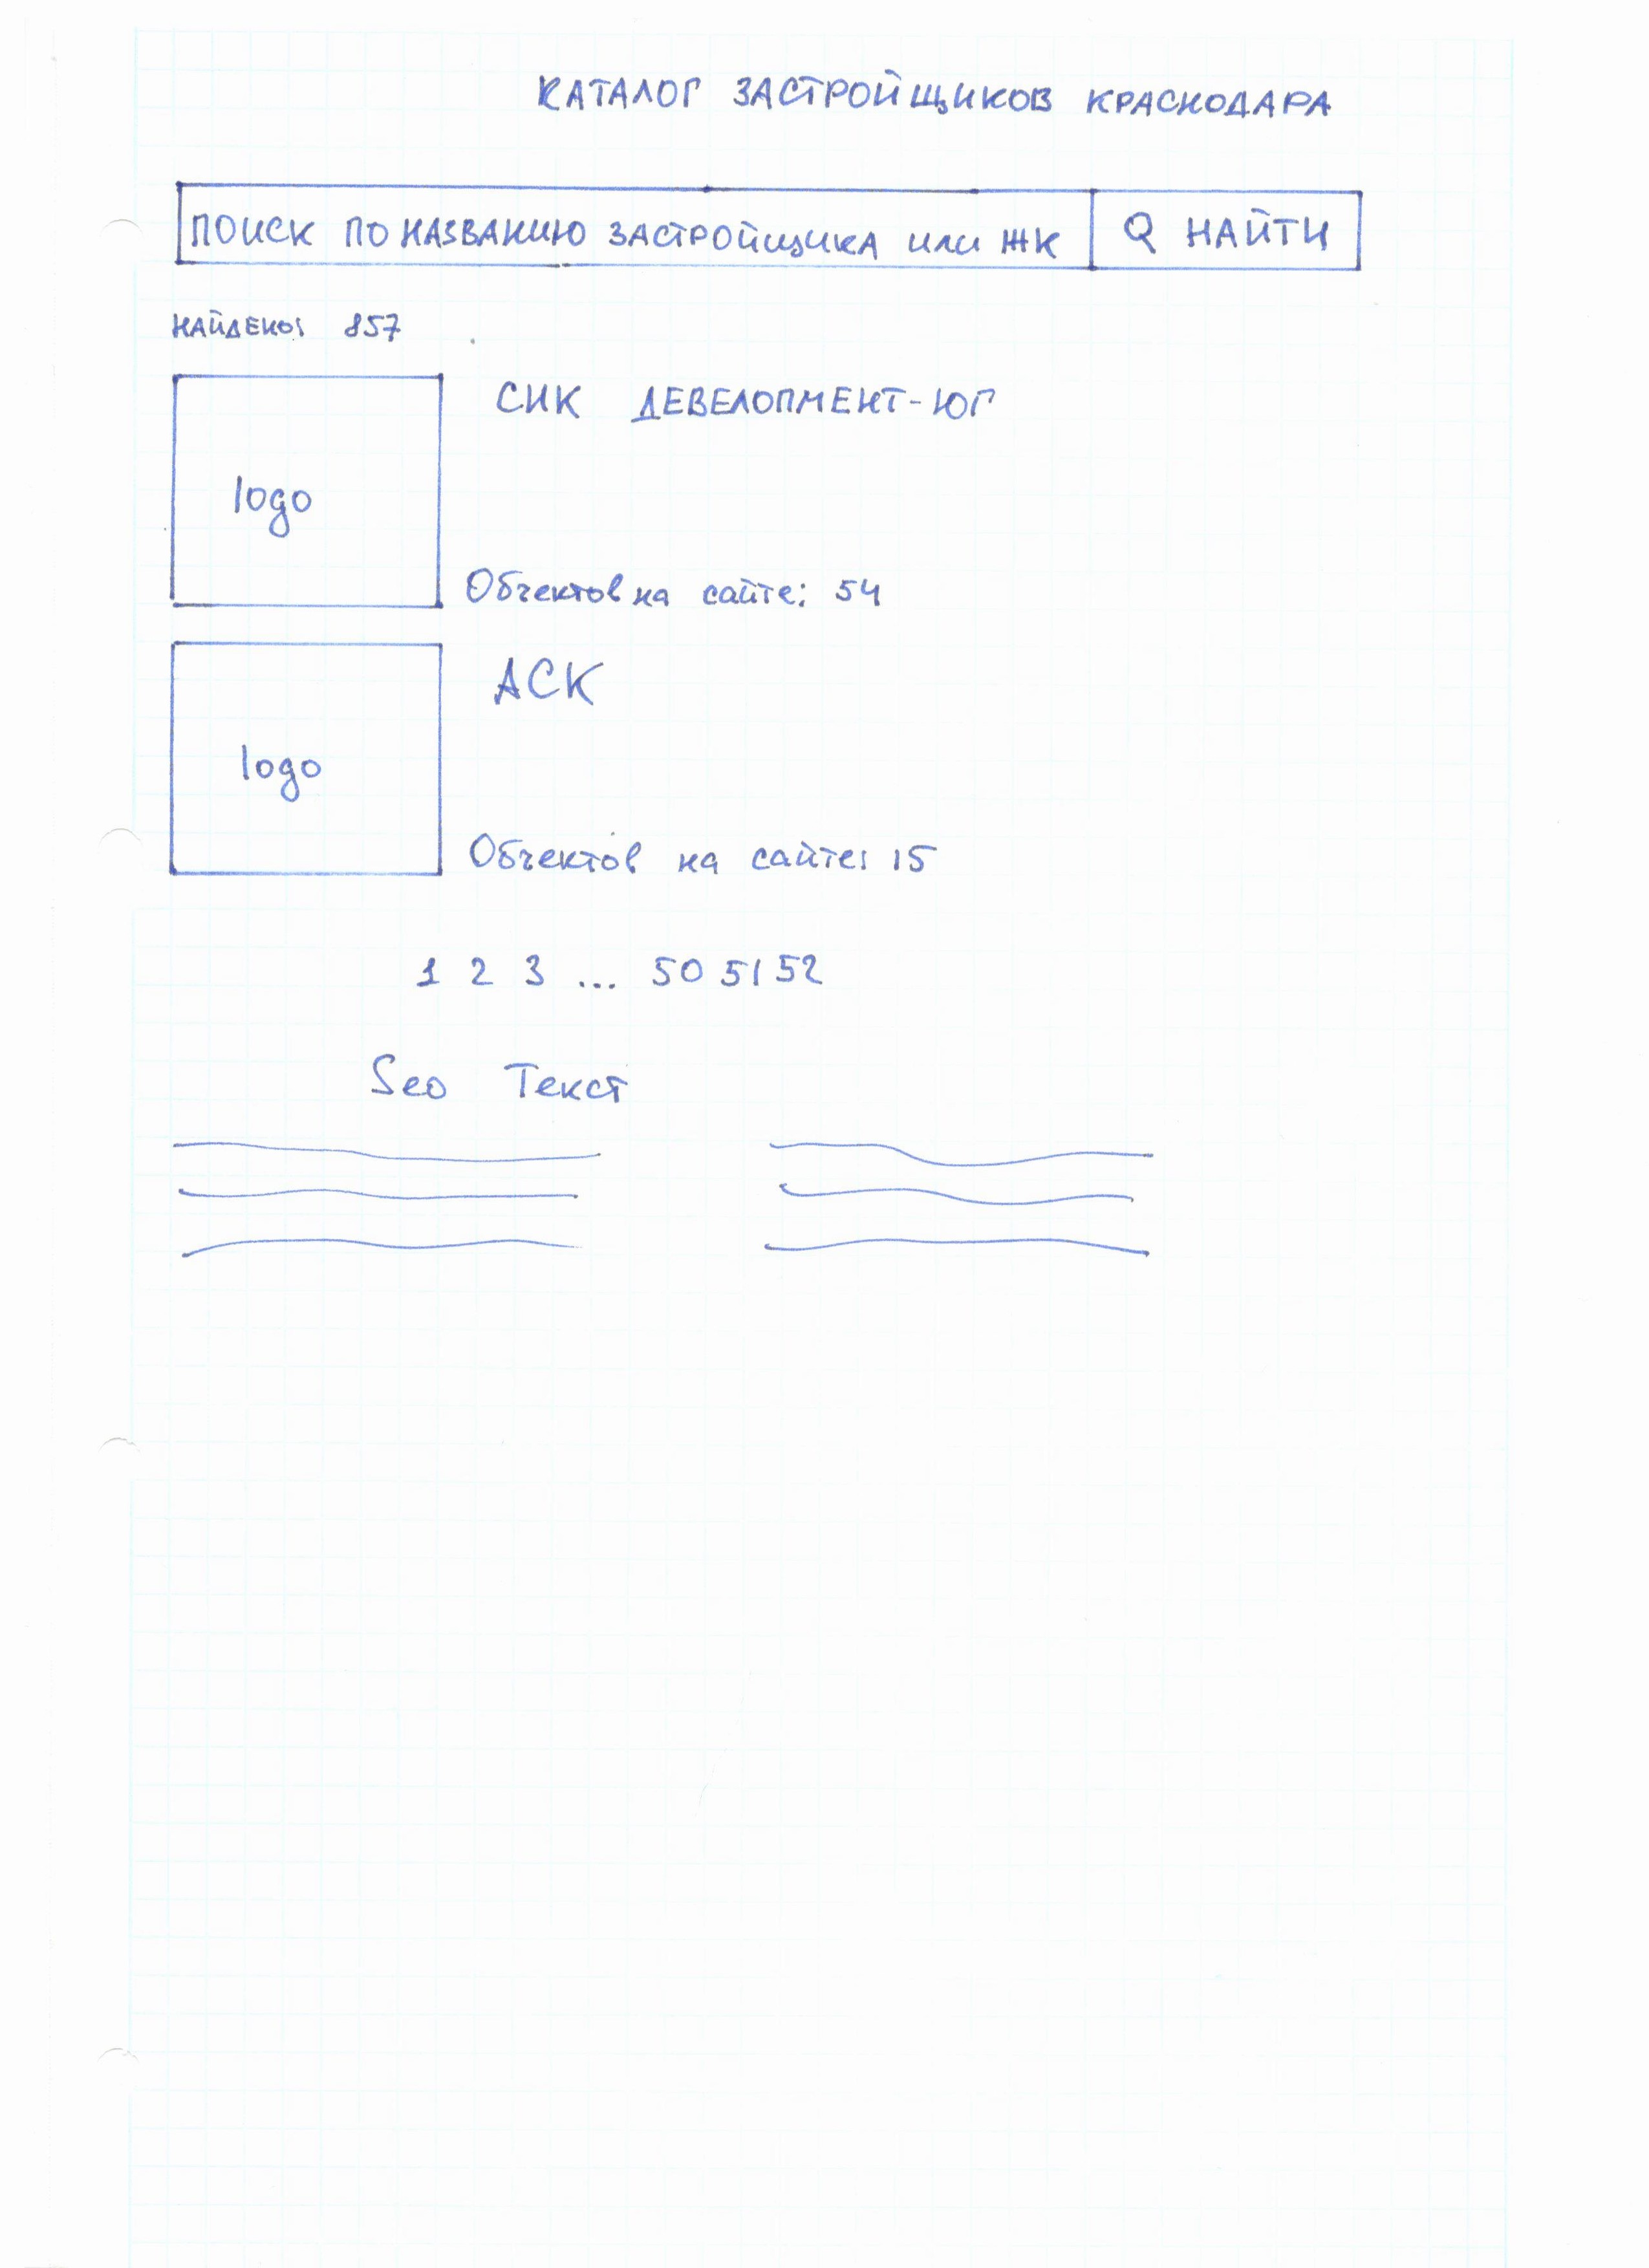 КАТАЛОГ ЗАСТРОЙЩИКОВ КРАСНОДАРА
ПОИСК ПО НАЗВАНИЮ ЗАСТРОЙЩИКА или ЖК
Q НАЙТИ
НАЙДЕНО: 857
logo
СИК ДЕВЕЛОПМЕНТ-ЮГ
Объектов на сайте: 54
logo
АСК
Объектов на сайте: 15
1 2 3 ... 50 51 52
Seo Текст